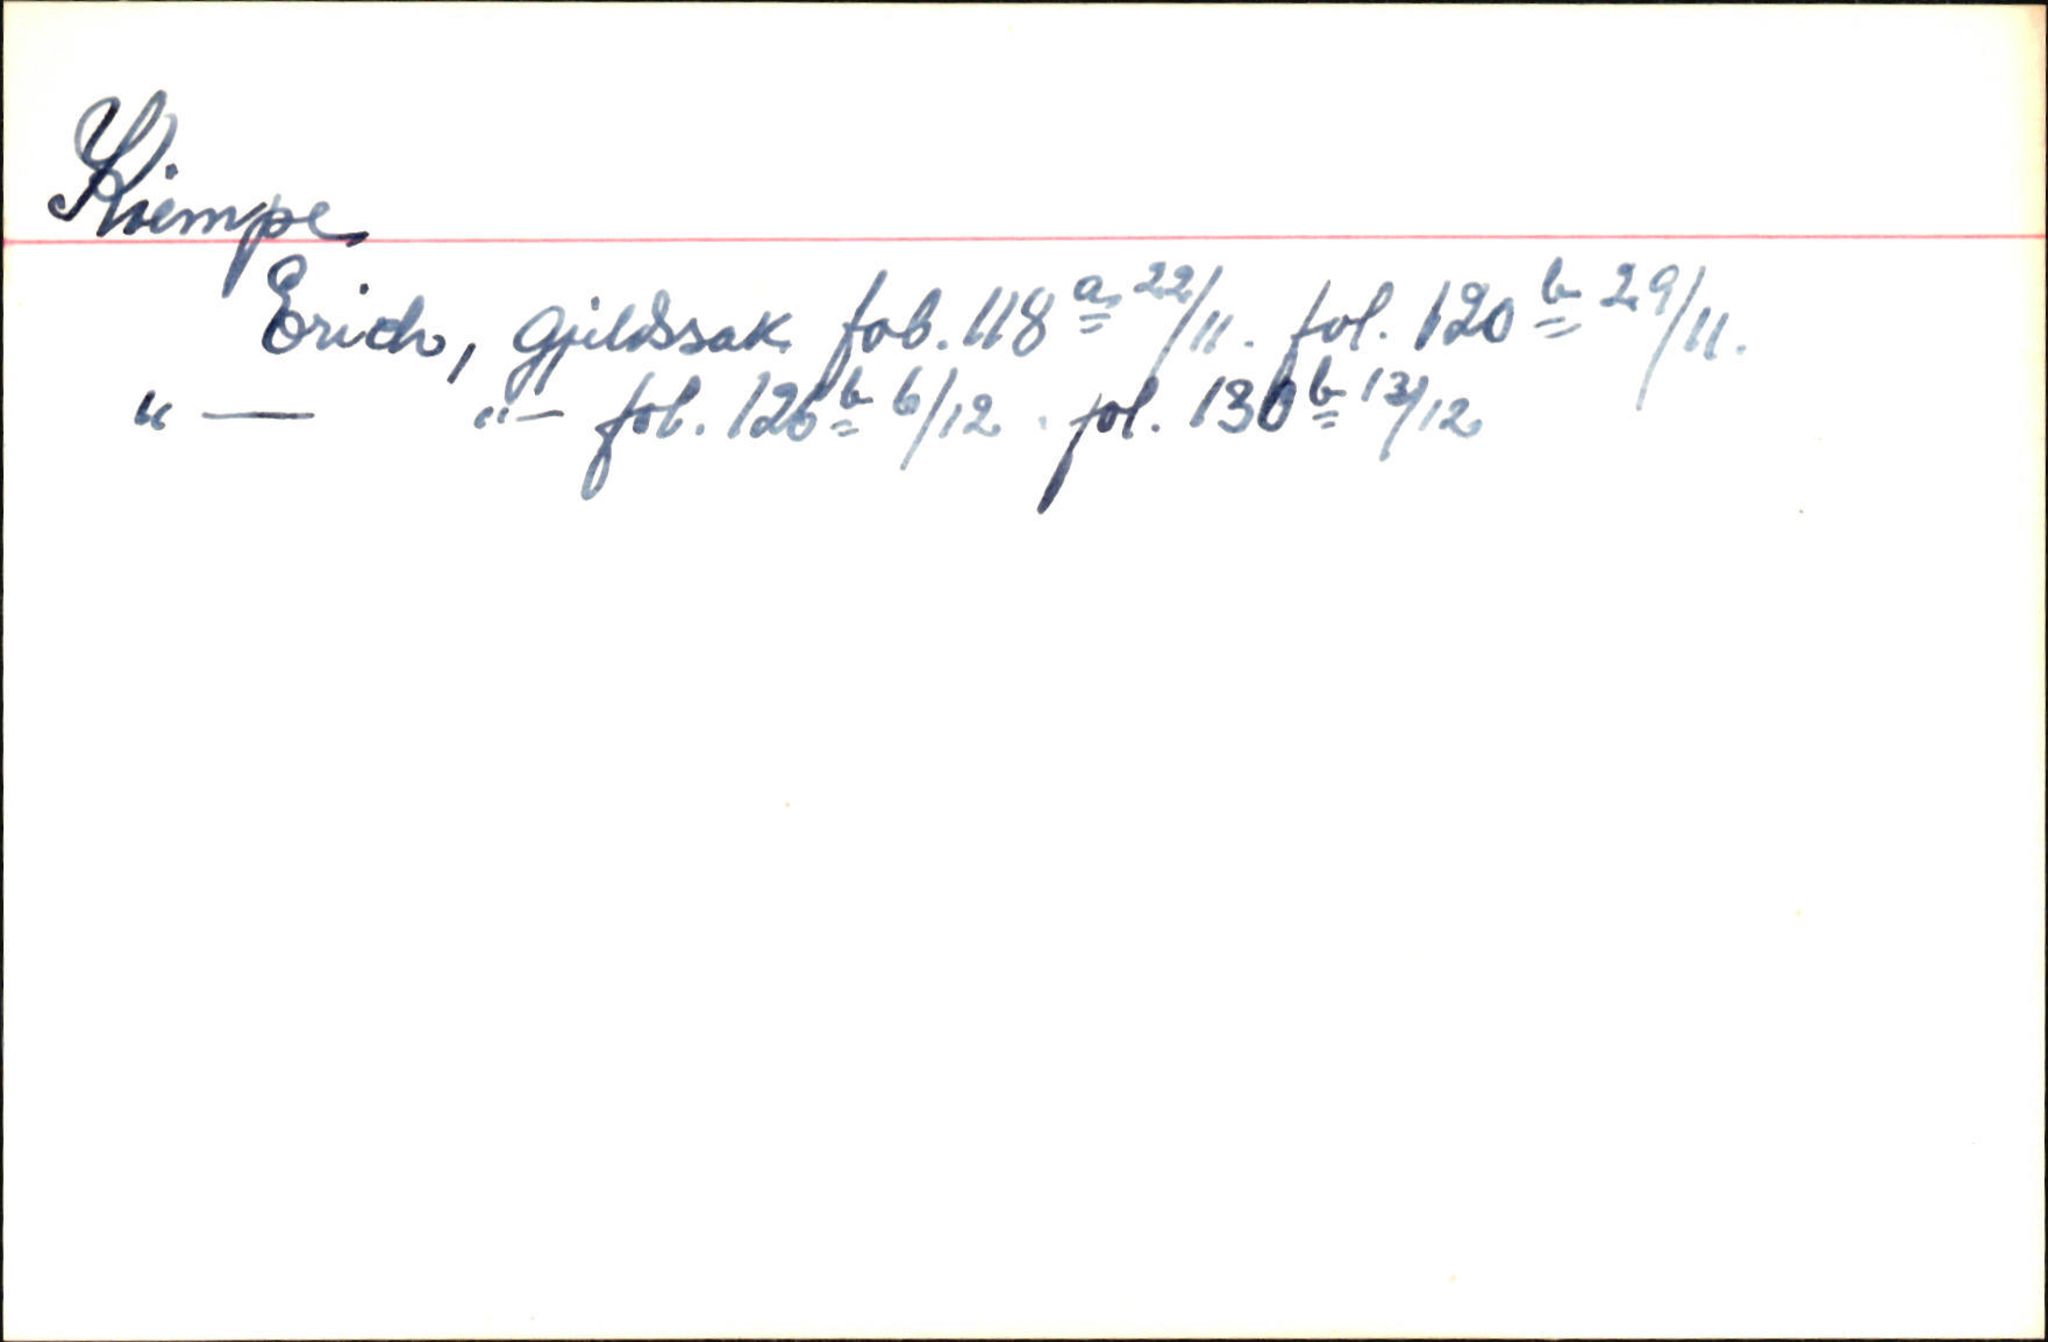 Kiempe
Erich, Gjeldssak fol. 118 a 22/11. fol. 120 b 29/11.
" — " — fol. 126 b 6/12. fol. 130 b 13/12